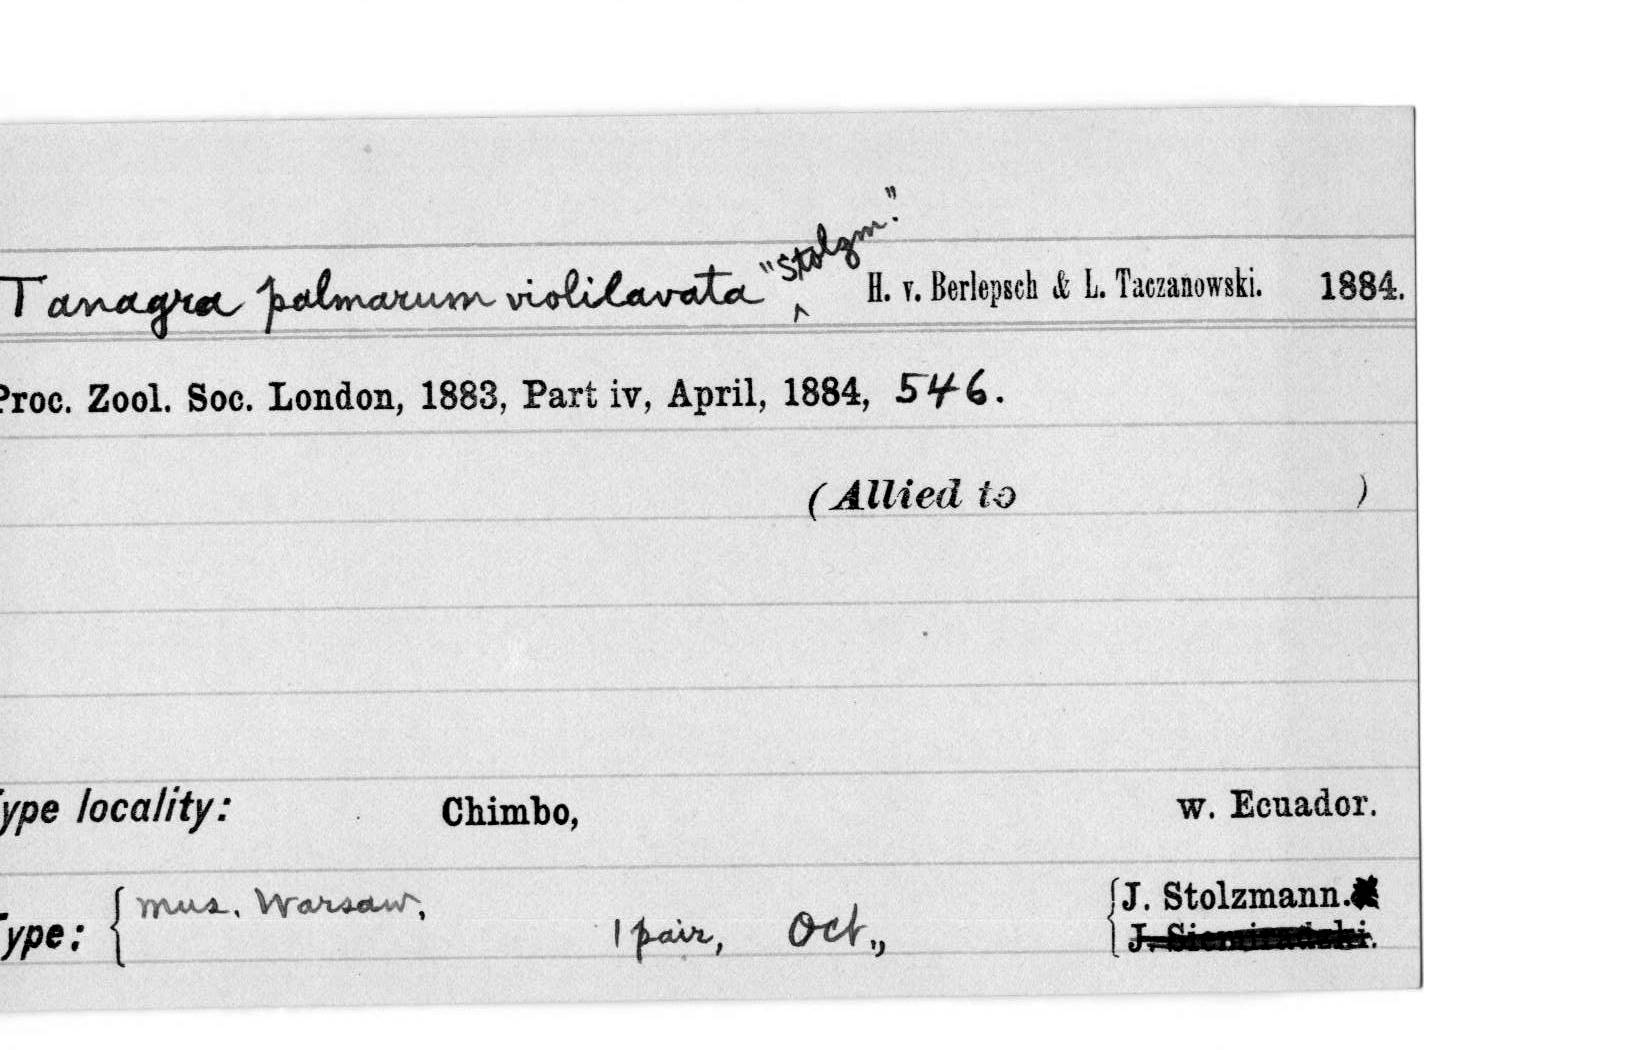 "Stolzm."
Tanagra palmarum violilavata ^ H. v. Berlepsch & L. Taczanowski. 1884.
Proc. Zool. Soc. London, 1883, Part iv, April, 1884, 546.
(Allied to )
ype locality: Chimbo, w. Ecuador.
ype: { mus. Warsaw, 1 pair, Oct., { J. Stolzmann.
J. Siemiradzki.